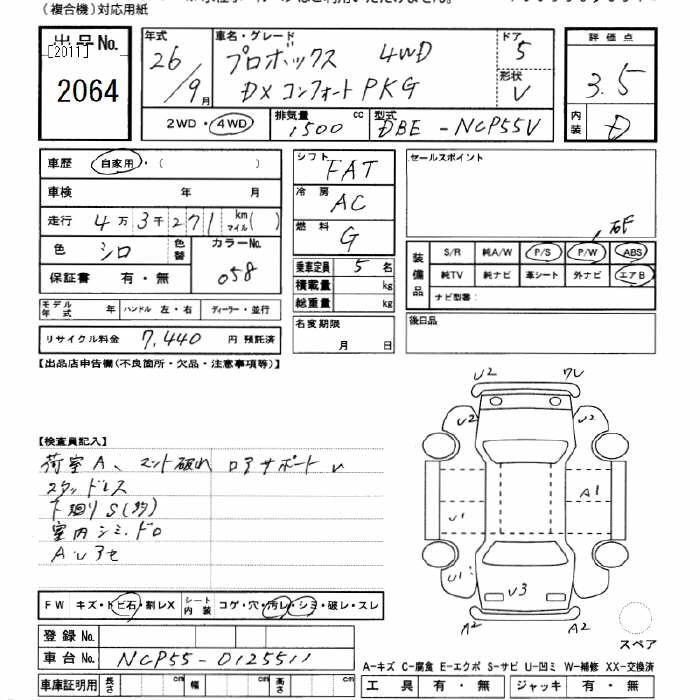 (複合機)対応用紙
出品No.
[2011]
2064
年式
26/9月
車名・グレード
プロボックス 4WD
DXコンフォートPKG
ドア
5
形状
V
評価点
3.5
内装
D
2WD・4WD
排気量
1500 cc
型式
DBE-NCP55V
車歴 自家用・( )
車検 年 月
走行 4万3千271km マイル( )
色 シロ
色替
カラーNo.
058
保証書 有・無
モデル年式 年
ハンドル 左・右
ディーラー・並行
リサイクル料金 7,440 円 預託済
シフト
FAT
冷房
AC
燃料
G
乗車定員 5名
積載量 kg
総重量 kg
名変期限
月 日
セールスポイント
装備品
S/R 純A/W P/S P/W ABS
純TV 純ナビ 革シート 外ナビ エアB
ナビ型番:
後日品
【出品店申告欄(不良箇所・欠品・注意事項等)】
【検査員記入】
荷室A、マット破れ ロアサポートU
スタッドレス
下廻りS(多)
室内シミ、ドロ
FW キズ・トビ石・割レX
シート内装 コゲ・穴・汚レ・シミ・破レ・スレ
登録No.
車台No. NCP55-0125511
車庫証明用 長さ cm 幅 cm 高さ cm
U2
U2
U2
A1
U1
U1
U3
A2
A2
スペア
A-キズ C-腐食 E-エクボ S-サビ U-凹ミ W-補修 XX-交換済
工具 有・無
ジャッキ 有・無